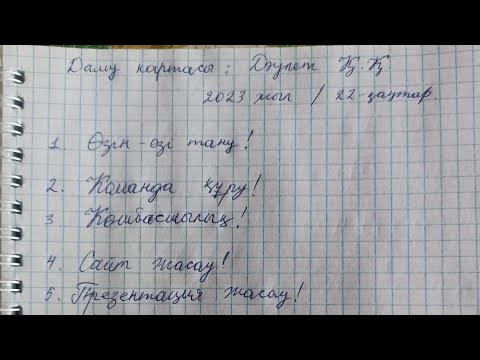 Даму картасы: Дәулет Қ.Қ
2023 жыл / 22-қаңтар.
1. Өзін-өзі тану!
2. Команда құру!
3 Көшбасшылық!
4. Сайт жасау!
5. Презентация жасау!